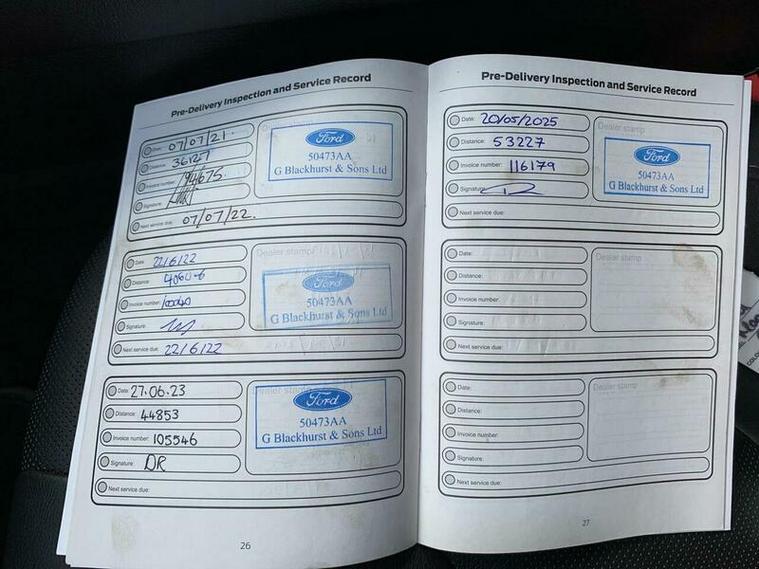 Pre-Delivery Inspection and Service Record
Date: 07/07/21.
Distance: 36127
Invoice number: 94675.
Signature:
Next service due: 07/07/22.
Dealer stamp
Ford
50473AA
G Blackhurst & Sons Ltd
Date: 22/6/22
Distance:
Invoice number:
Signature:
Next service due: 22/6/22
Dealer stamp
Ford
50473AA
G Blackhurst & Sons Ltd
Date: 27.06.23
Distance: 44853
Invoice number: 105546
Signature: DR
Next service due:
Dealer stamp
Ford
50473AA
G Blackhurst & Sons Ltd
26
Pre-Delivery Inspection and Service Record
Date: 20/05/2025
Distance: 53227
Invoice number: 116179
Signature:
Next service due:
Dealer stamp
Ford
50473AA
G Blackhurst & Sons Ltd
Date:
Distance:
Invoice number:
Signature:
Next service due:
Dealer stamp
Date:
Distance:
Invoice number:
Signature:
Next service due:
Dealer stamp
27